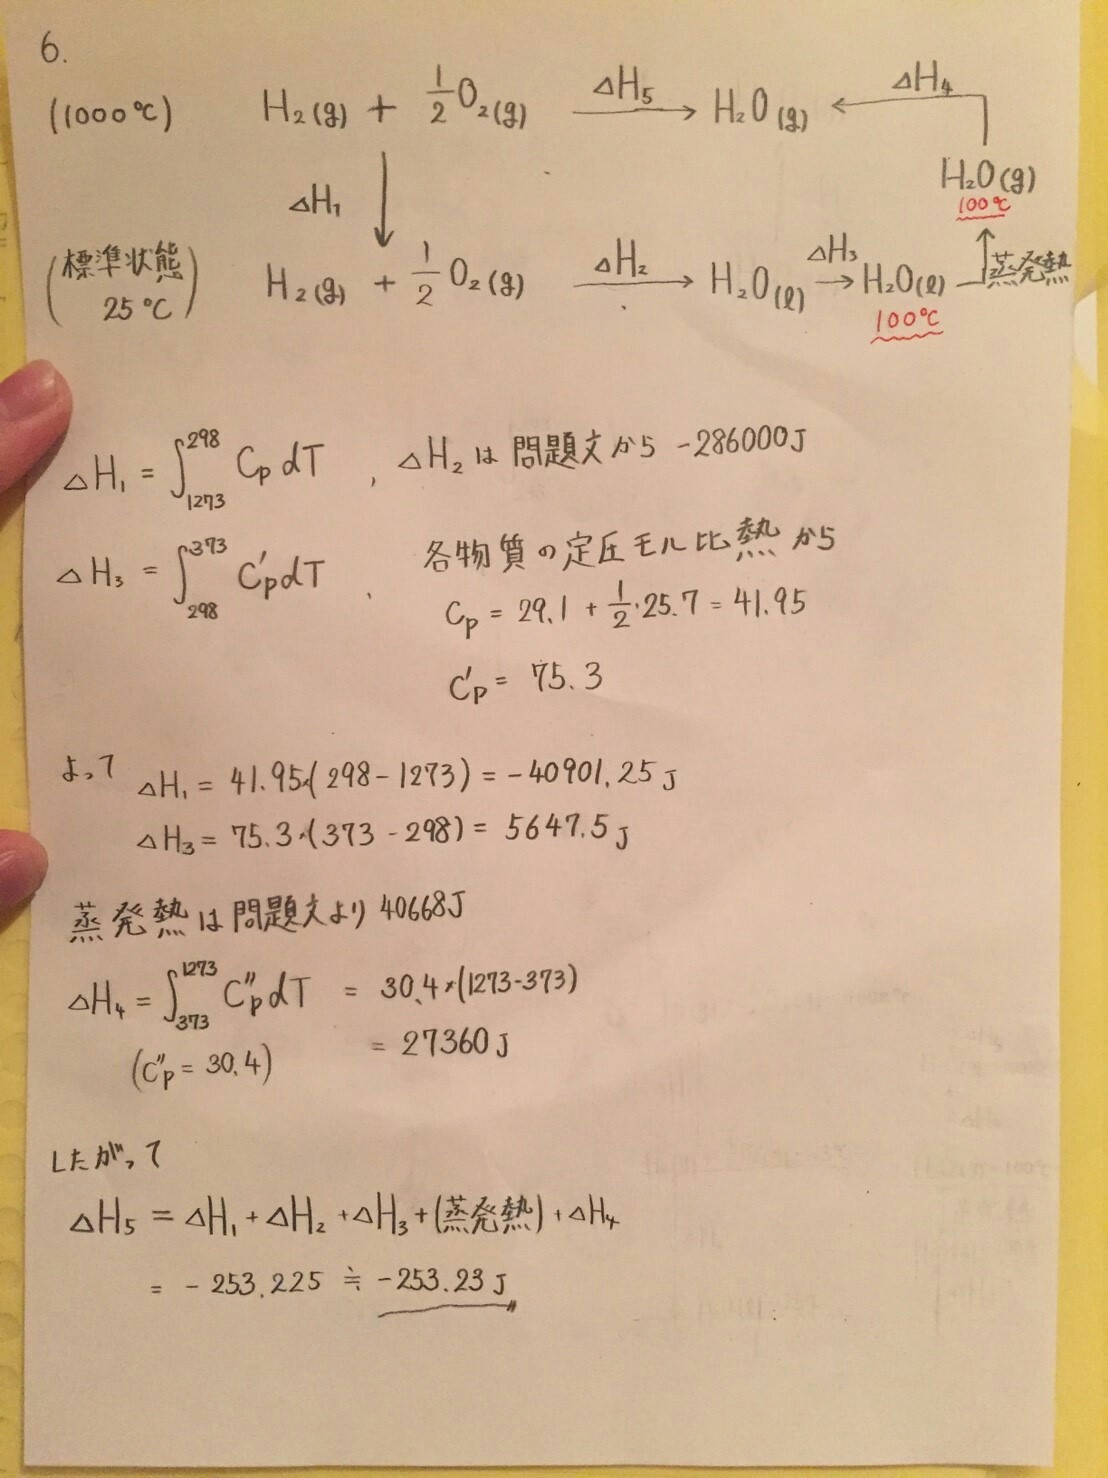 6.
(1000℃) H₂(g) + 1/2 O₂(g) →ΔH₅ H₂O(g) ←ΔH₄
ΔH₁ ↓ H₂O(g)
100℃
(標準状態 25℃) H₂(g) + 1/2 O₂(g) →ΔH₂ H₂O(l) →ΔH₃ H₂O(l) → 蒸発熱
100℃
ΔH₁ = ∫₁₂₇₃²⁹⁸ Cp dT , ΔH₂は問題文から -286000J
ΔH₃ = ∫₂₉₈³⁷³ C'p dT . 各物質の定圧モル比熱から
Cp = 29.1 + 1/2・25.7 = 41.95
C'p = 75.3
よって ΔH₁ = 41.95×(298-1273) = -40901.25J
ΔH₃ = 75.3×(373-298) = 5647.5J
蒸発熱は問題文より 40668J
ΔH₄ = ∫₃₇₃¹²⁷³ C''p dT = 30.4×(1273-373)
(C''p = 30.4) = 27360J
したがって
ΔH₅ = ΔH₁ + ΔH₂ + ΔH₃ + (蒸発熱) + ΔH₄
= -253.225 ≒ -253.23J